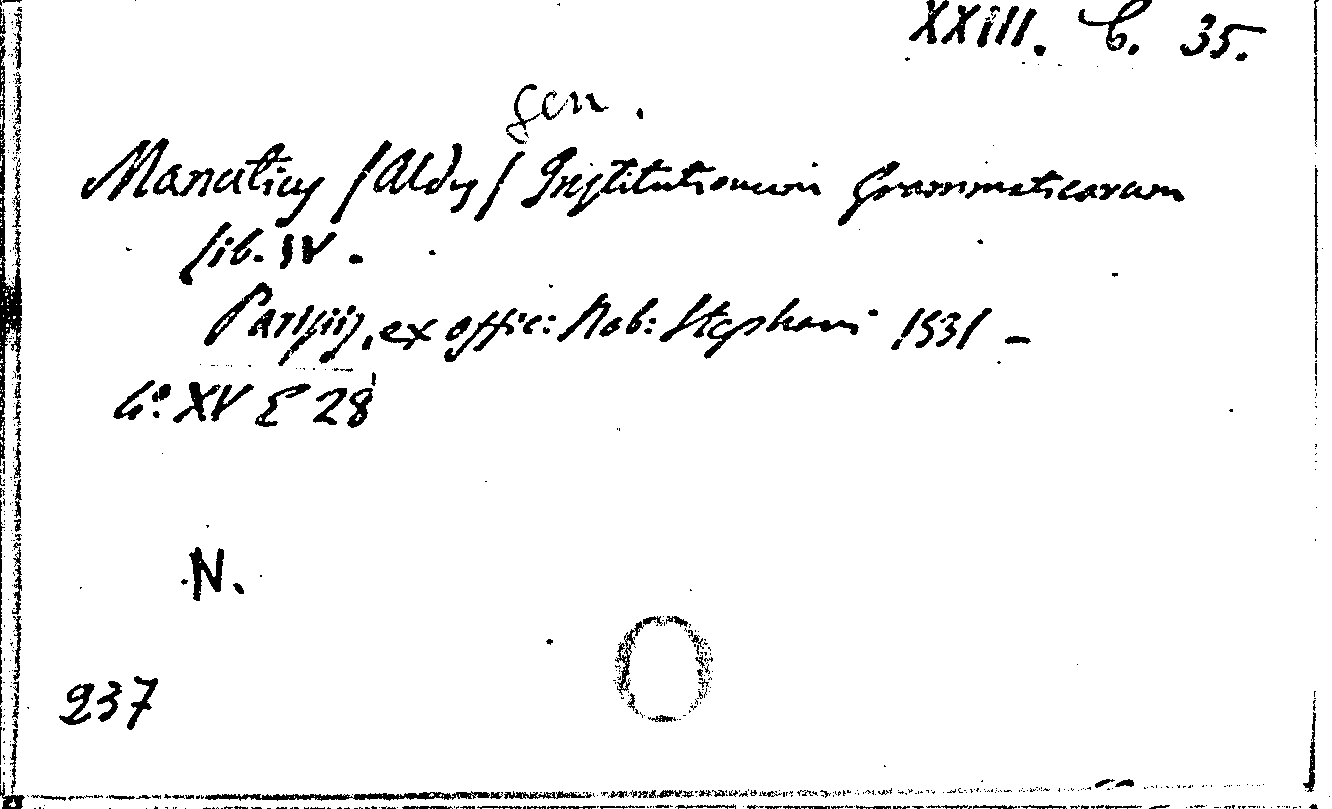 XXIII. C. 35.
gen.
Manutius /Aldus/ Institutionum Grammaticarum
lib. IV.
Parisiis, ex offic: Rob: Stephani 1531 -
4º. XV E 28
N.
237